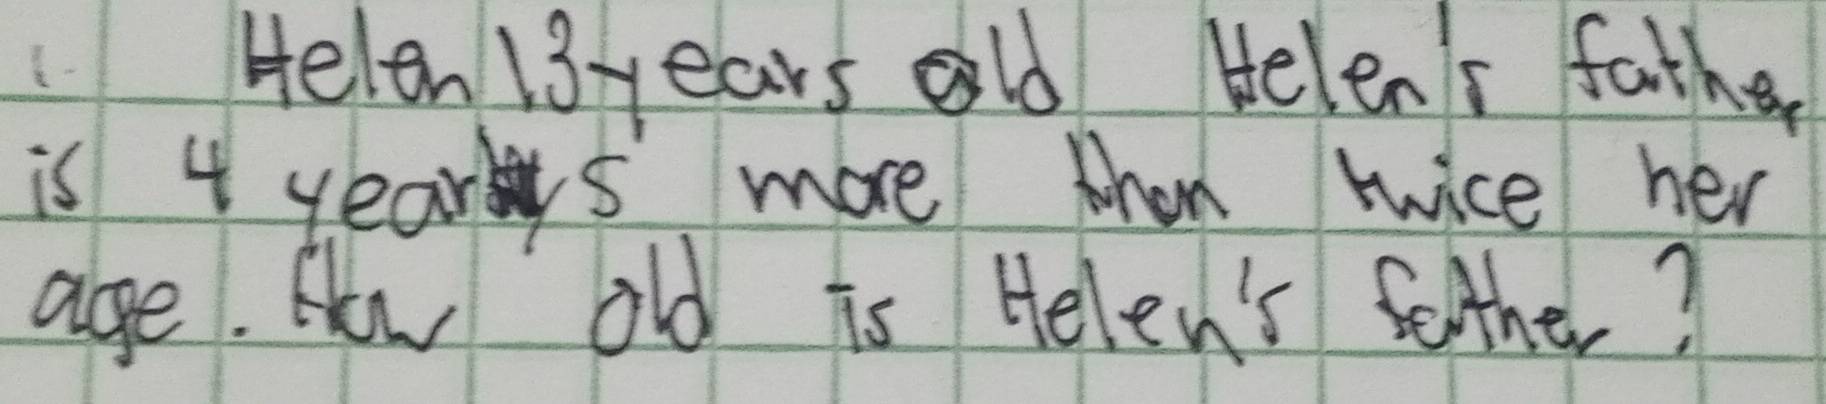 1. Helen 13 years old Helen's father
is 4 years more than twice her
age. How old is Helen's father?